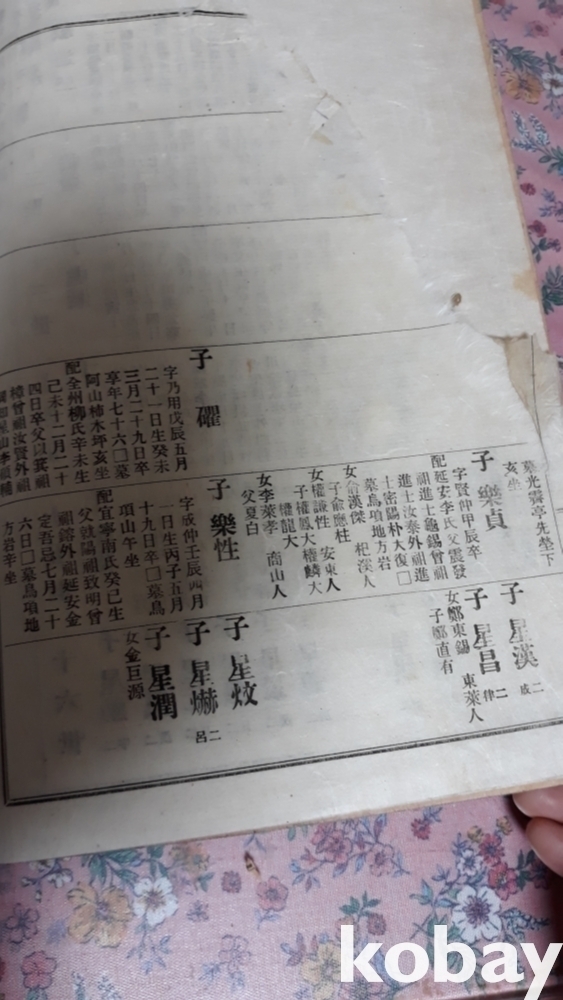 子 礭
字乃用戊辰五月
二十一日生癸未
三月二十九日卒
享年七十六□墓
阿山柿木坪亥坐
配全州柳氏辛未生
己未十二月二十
四日卒父以箕祖
樟曾祖汝賢外祖
墓光霽亭先塋下
亥坐
子 樂貞
字賢仲甲辰卒
配延安李氏父震發
祖進士龜錫曾祖
進士汝泰外祖進
士密陽朴大復□
墓鳥項地方岩
女俞漢傑 杞溪人
子俞應柱
女權謙性 安東人
子權鳳大權麟大
權龍大
女李萊孝 商山人
父夏白
子 樂性
字成仲壬辰四月
一日生丙子五月
十九日卒□墓鳥
項山午坐
配宜寧南氏癸巳生
父就陽祖致明曾
祖鎔外祖延安金
定吾忌七月二十
六日□墓鳥項地
方岩辛坐
子 星漢 二成
子 星昌 二律
女鄭東錫 東萊人
子鄭直有
子 星炆
子 星爀 二呂
子 星潤
女金巨源
kobay